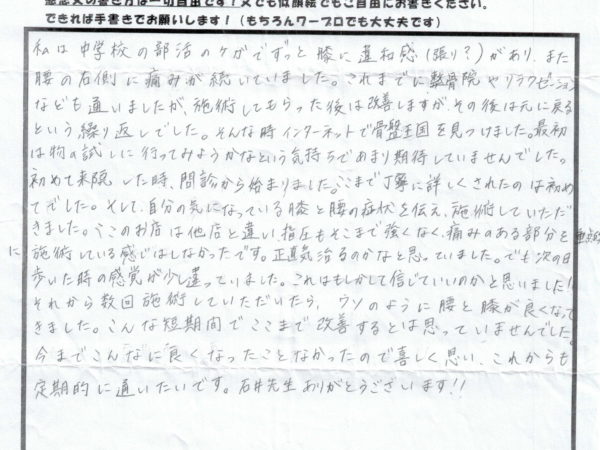 感想文の書き方は一切自由です！文でも似顔絵でもご自由にお書きください。
できれば手書きでお願いします！（もちろんワープロでも大丈夫です）
私は中学校の部活のケガでずっと膝に違和感（張り？）があり、また
腰の右側に痛みが続いていました。これまでに整骨院やリラクゼーション
なども通いましたが、施術してもらった後は改善しますがその後は元に戻る
という繰り返しでした。そんな時インターネットで骨盤王国を見つけました。最初
は物の試しに行ってみようかなという気持ちであまり期待していませんでした。
初めて来院した時、問診から始まりました。ここまで丁寧に詳しくされたのは初め
てでした。そして、自分の気になっている膝と腰の症状を伝え、施術していただ
きました。ここのお店は他店と違い、指圧もそこまで強くなく、痛みのある部分を重点的
に施術している感じはしなかったです。正直気治るのかなと思っていました。でも次の日
歩いた時の感覚が少し違っていました。これはもしかして信じていいのかと思いました！
それから数回施術していただいたら、ウソのように腰と膝が良くなって
きました。こんな短期間でここまで改善するとは思っていませんでした。
今までこんなに良くなったことなかったので喜しく思い、これからも
定期的に通いたいです。石井先生ありがとうございます!!